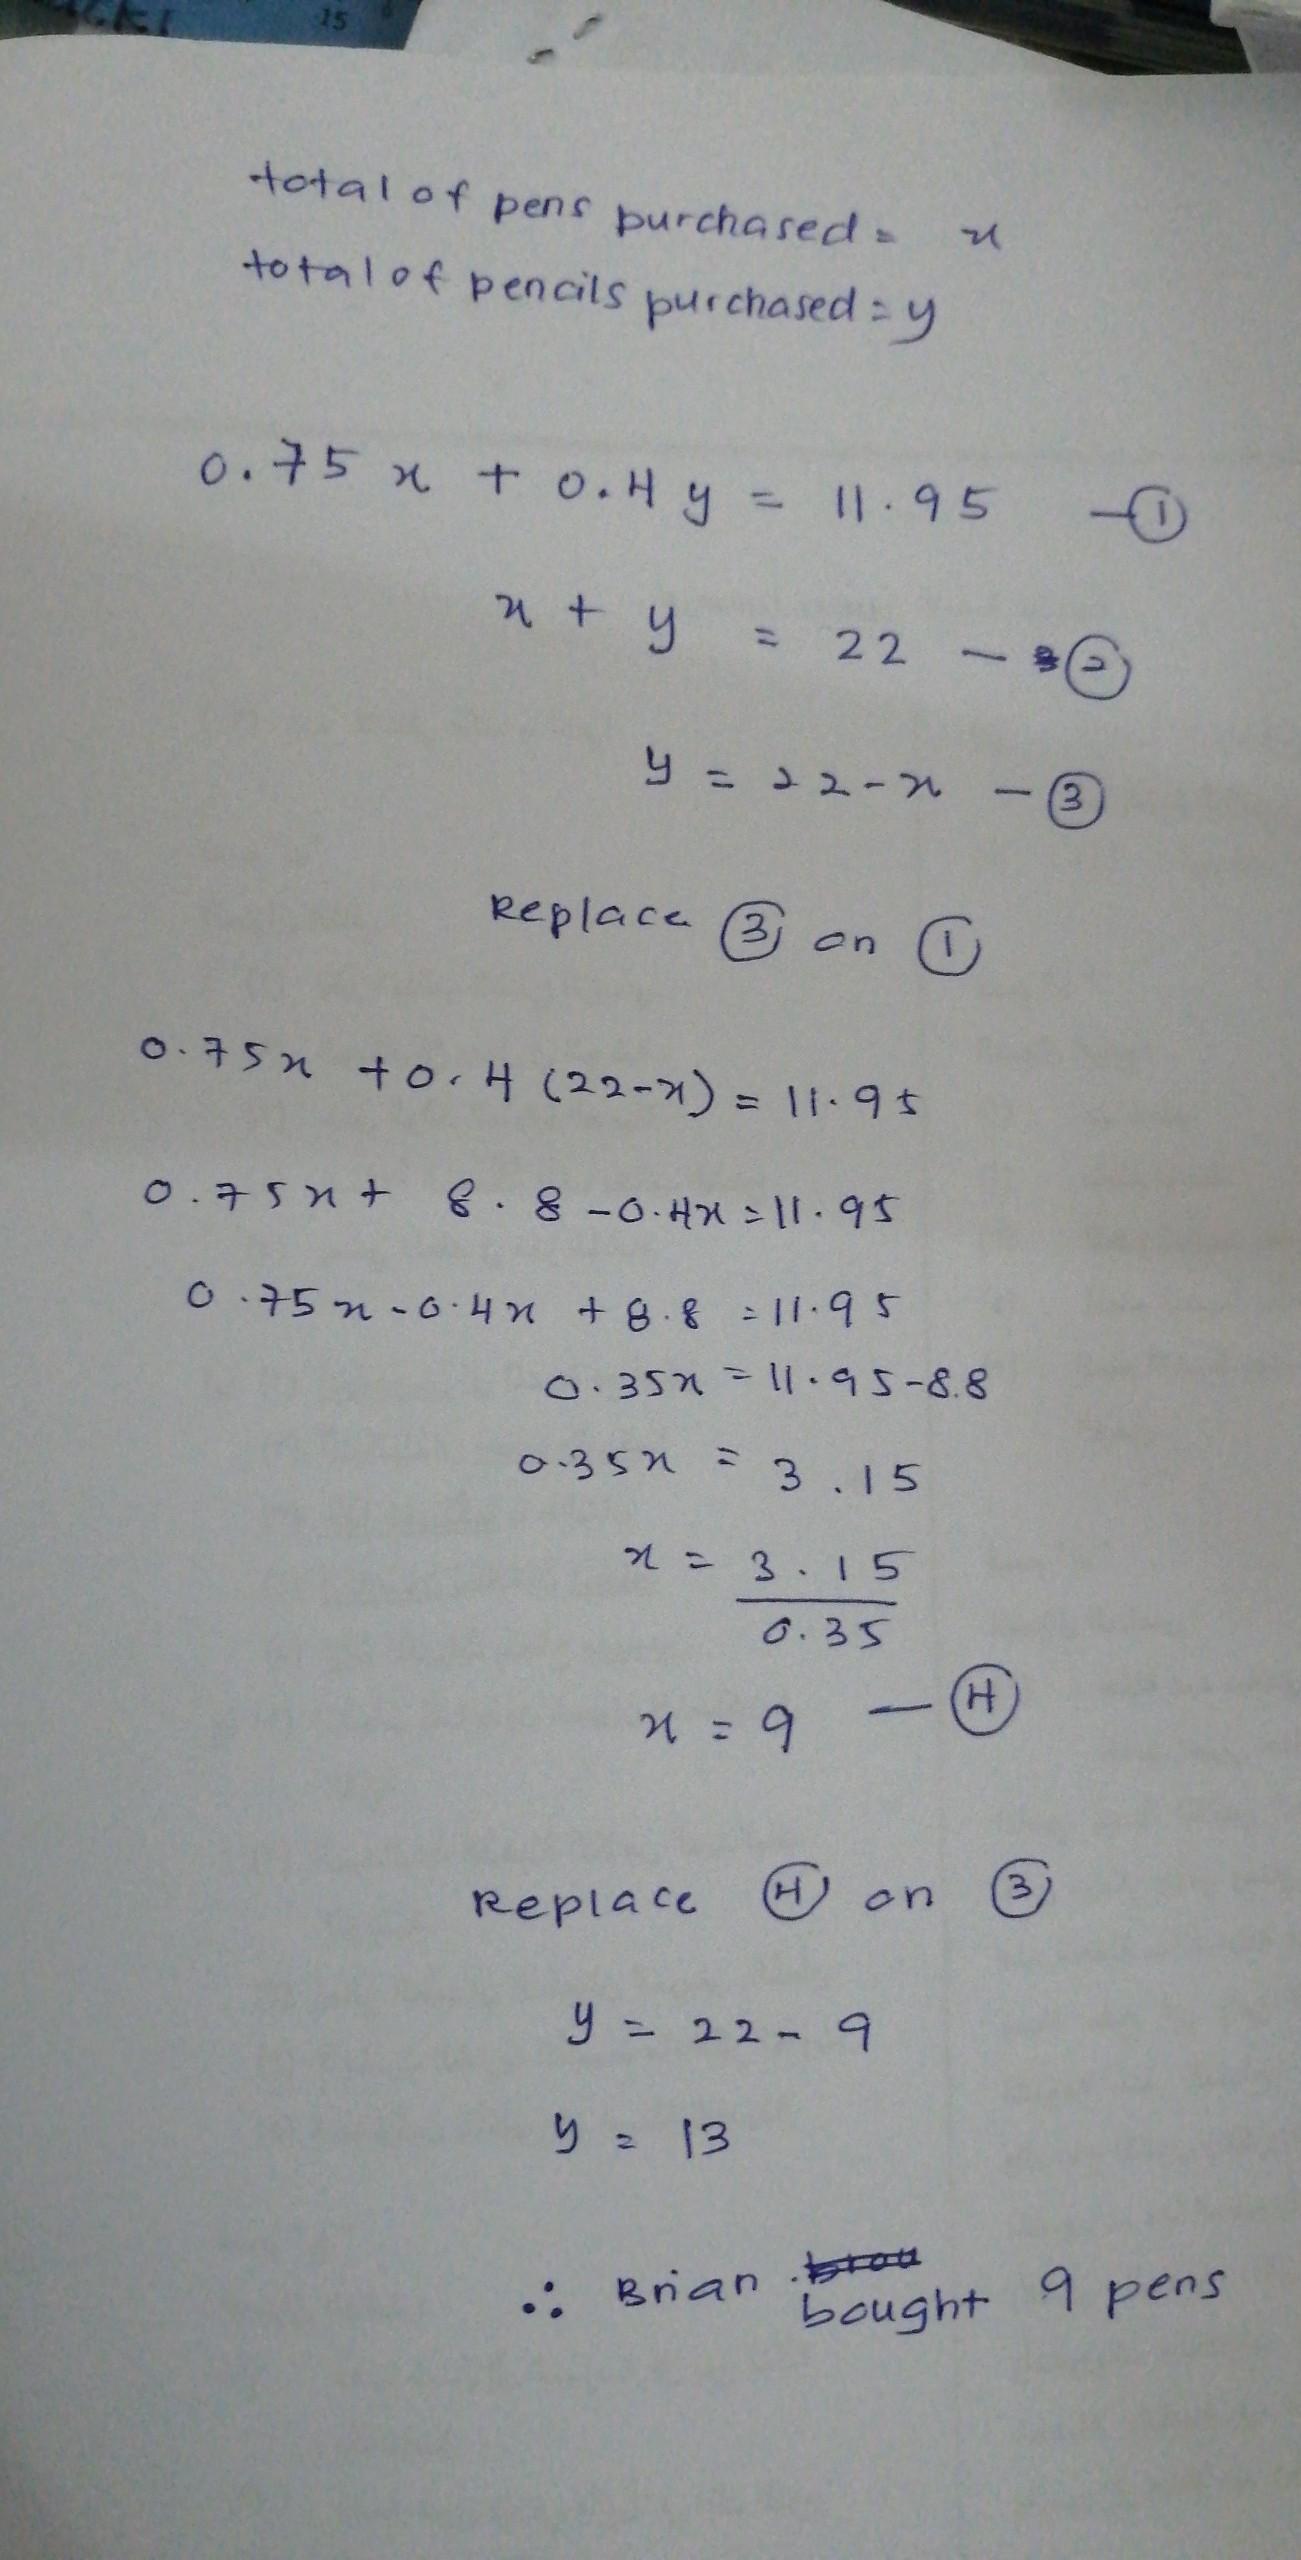 15
total of pens purchased = x
total of pencils purchased = y
0.75 x + 0.4 y = 11.95 — ①
x + y = 22 — ②
y = 22 - x — ③
Replace ③ on ①
0.75x + 0.4 (22-x) = 11.95
0.75x + 8.8 - 0.4x = 11.95
0.75x - 0.4x + 8.8 = 11.95
0.35x = 11.95-8.8
0.35x = 3.15
x = 3.15
0.35
x = 9 — ④
Replace ④ on ③
y = 22 - 9
y = 13
∴ Brian bought 9 pens